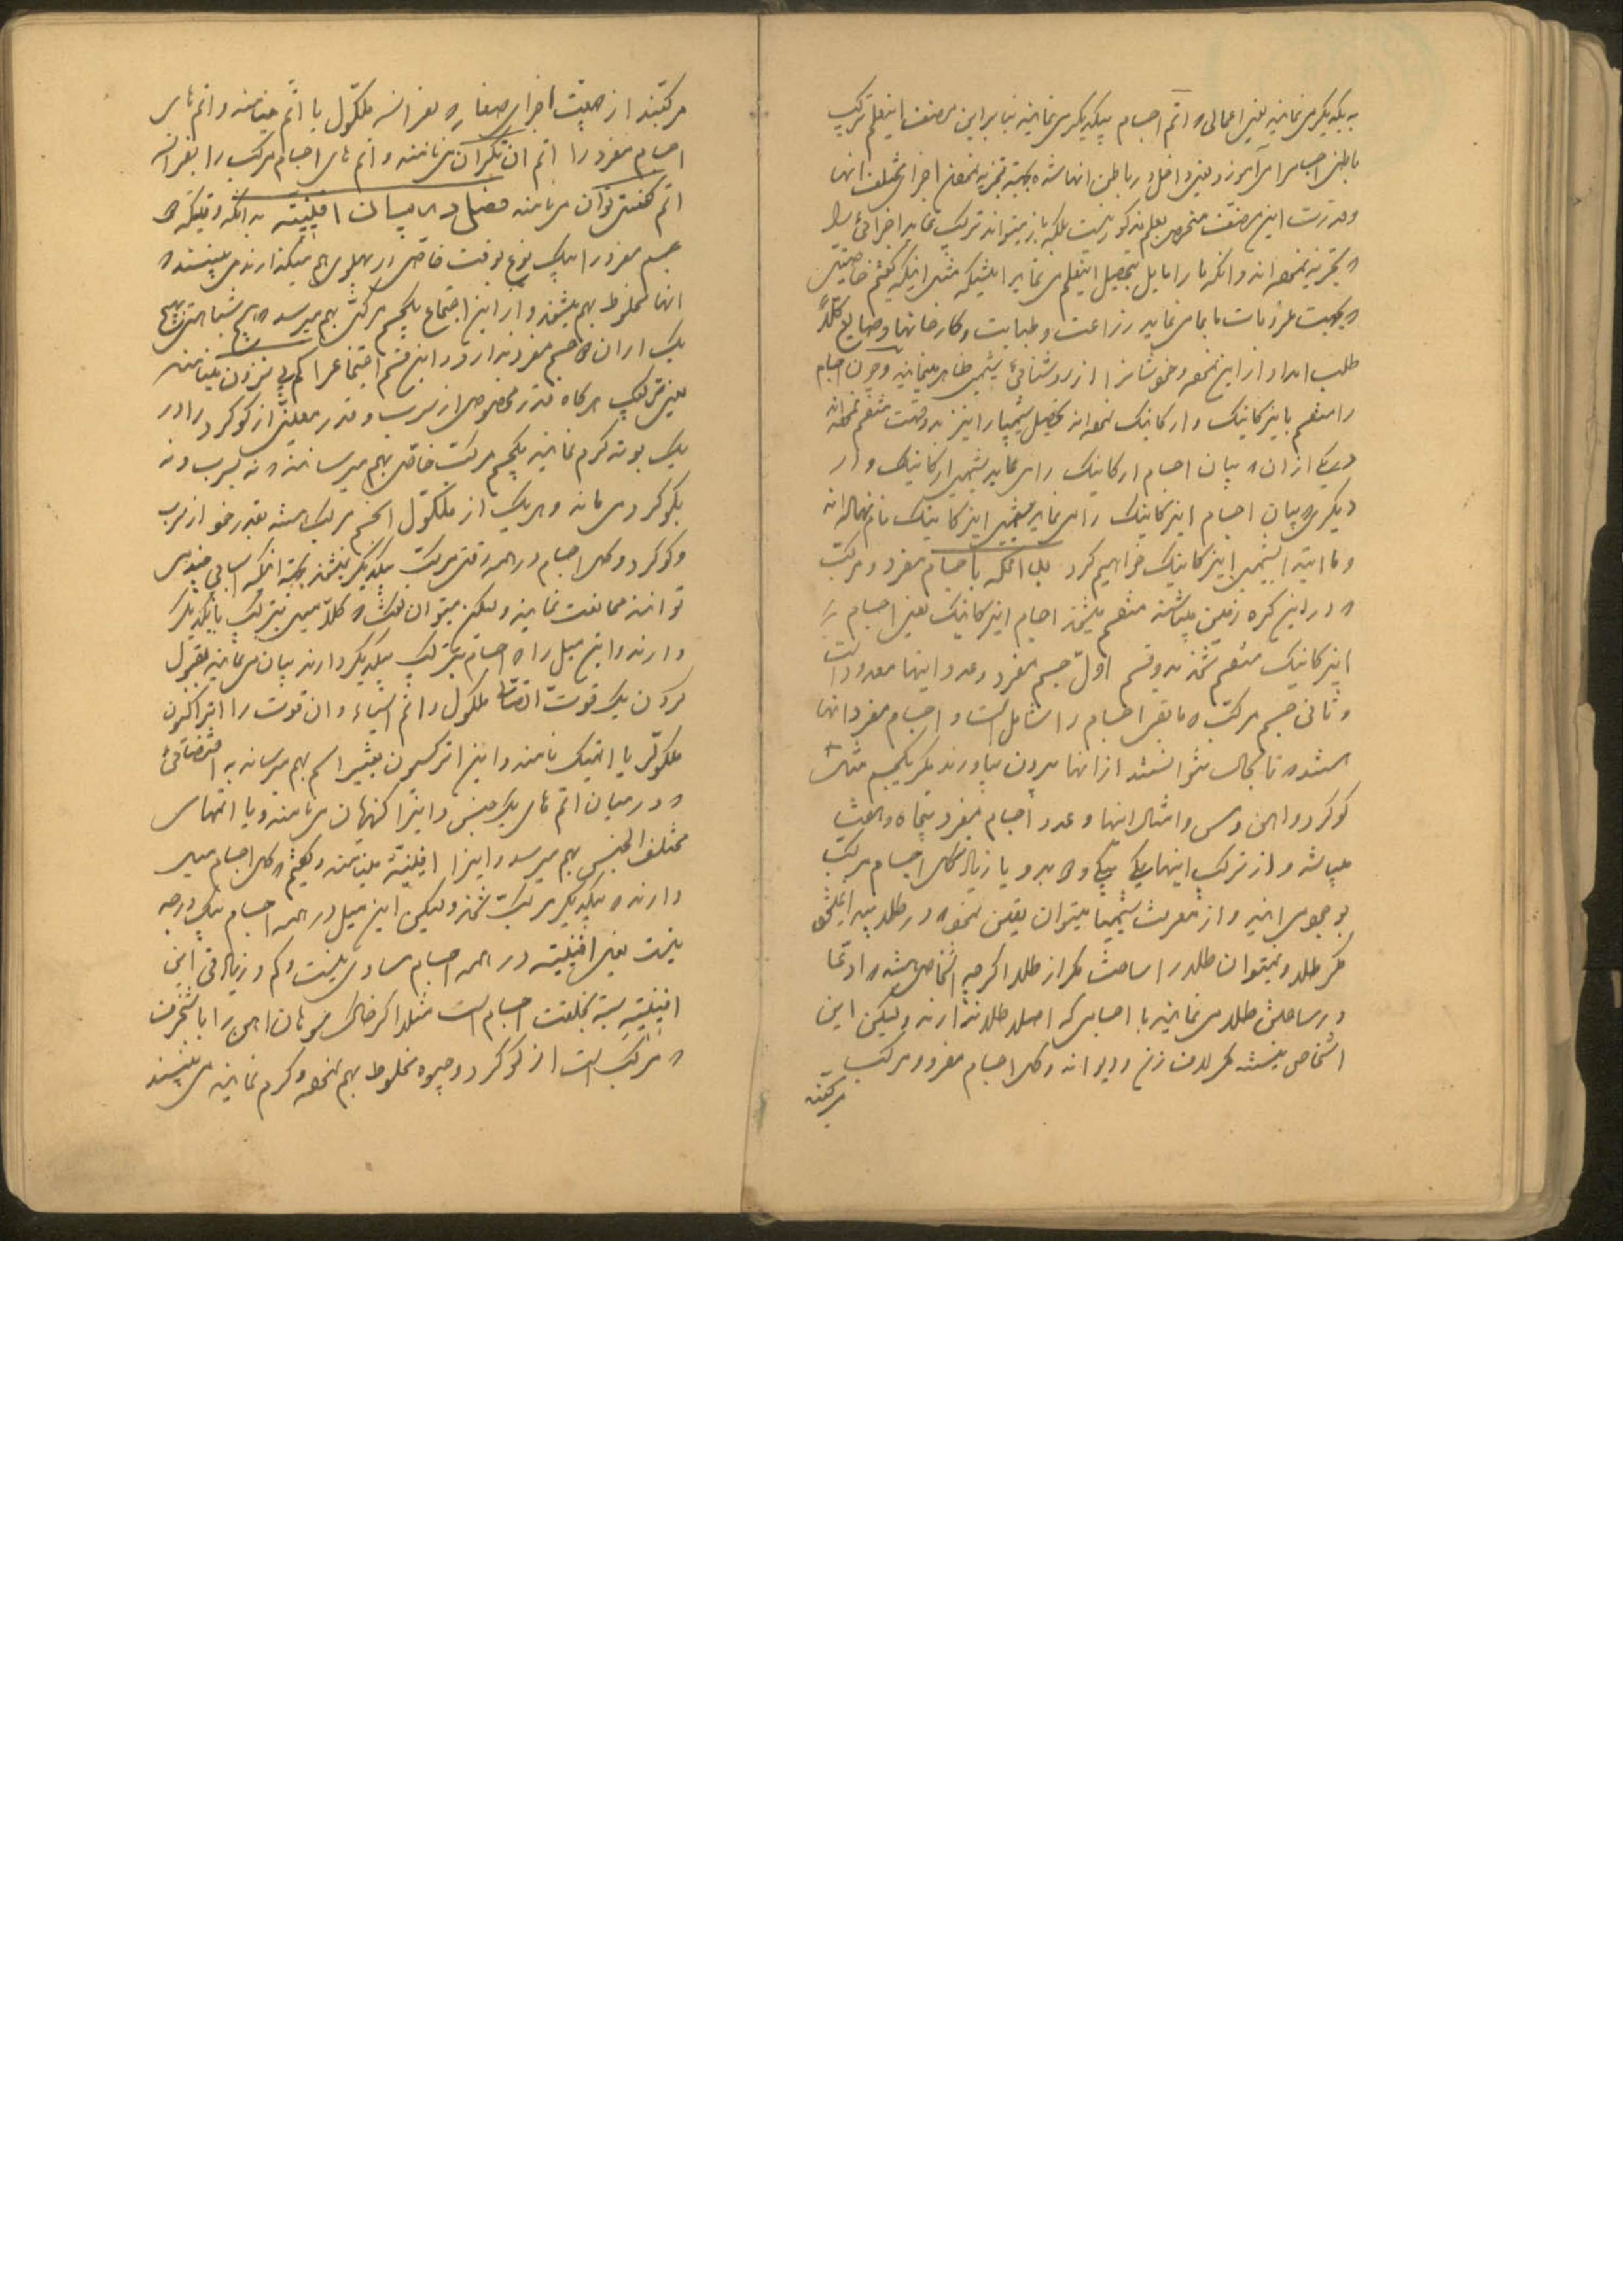 به یکدیگر می‌نمایند یعنی اعمالی که اتم اجسام بیکدیگر می‌نمایند بنابراین صنعت اینعلم ترکیب
باطنی اجسام را می‌آموزد یعنی داخل در باطن انها شده بجهة تجزیه نمودن اجزای مختلف انها
و قدرت این صنعت منحصر بعلم مذکور نیست بلکه باز میتواند ترکیب نماید اجزائی را
که تجزیه نموده‌اند و انکه ما را مایل بتحصیل اینعلم می‌نماید
که بجهت ملزومات ما بما می‌نماید زراعت و طبابت و کارخانها و صنایع کلاً
طلب امداد از این نموده و خودشانرا از روشنائی شیمی ظاهر مینمایند و چون اجسام
را منقسم باینرکانیک و ارکانیک نموده‌اند تحصیل شیمیا را نیز بدو قسمت منقسم نموده‌اند
یکی از ان که بیان اجسام ارکانیک را می‌نماید بشیمی ارکانیک و از
دیگری که بیان اجسام اینرکانیک را می‌نماید بشیمی اینرکانیک نام نهاده‌اند
و ما ابتدا بشیمی اینرکانیک خواهیم کرد بدانکه اجسام مفرد و مرکب
که در این کره زمین میباشند منقسم میشوند اجسام اینرکانیک یعنی اجسام
اینرکانیک منقسم شوند بدو قسم اول جسم مفرد و عدد اینها معدود است
و ثانی جسم مرکب که مابقی اجسام را شامل است و اجسام مفرد انها
هستند که تا بحال نتوانستند از انها بیرون بیاورند مگر یکجسم مثل
کوکرد و اهن و مس و امثال اینها و عدد اجسام مفرد پنجاه و هشت
میباشد و از ترکیب اینها یکی بیکی و یا زیاده کل اجسام مرکب
بوجود می‌ایند و از معرفت شیمیا میتوان یقین نمود که در طلا پیدا نمیشود
مگر طلا و نمیتوان طلا را ساخت مگر از طلا اگرچه اشخاصی هستند که ادعا
در ساختن طلا می‌نمایند با اجسامی که اصلا طلا ندارند ولیکن این
اشخاص نیستند مگر لاف زن و دیوانه و کل اجسام مفرد و مرکب
مرکبند
مرکبند از هیئت اجزای صغار که بفرانسه ملکول یا اتم مینامند و اتم‌های
اجسام مفرد را اتم انتکران می‌نامند و اتم های اجسام مرکب را بفرانسه
اتم کنستیتوان می‌نامند فصل در بیان افینیته بدانکه وقتیکه دو
جسم مفرد را بیک نوع بوقت خاصی در پهلوی هم میگذارند می‌بینند که
انها مخلوط بهم میشوند و از این اجتماع یکجسم مرکبی بهم میرسد که هیچ شباهتی بهیچ
یک از ان دو جسم مفرد ندارد و این قسم اجتماع را کمبینزون مینامند
یعنی ترکیب هرگاه قدر مخصوصی از سرب و قدر معینی از کوکرد را در
یک بوته گرم نمایند یکجسم مرکب خاصی بهم میرسانند که نه بسرب و نه
بکوکرد می‌ماند و هر یک از ملکول انجسم مرکب هستند بقدر خود از سرب
و کوکرد و کل اجسام در همه وقتی مرکب بیکدیگر نمیشوند بجهة انکه اسبابی چند می
توانند ممانعت نمایند ولیکن میتوان گفت که کلاً میل بترکیب با یکدیگر
دارند و این میل را که اجسام بترکیب بیکدیگر دارند بیان می‌نمایند بقبول
کردن یک قوت اتصال ملکول و اتم اشیاء و ان قوت را اتراکسیون
ملکولر یا اتمیک نامند و این اتراکسیون تغییر اسم بهم میرساند به اقتضائی
که در میان اتم های یک جنس و اینرا کهزیون می‌نامند و یا اتمهای
مختلف الجنس بهم میرسد و اینرا افینیته مینامند و گفتیم که کل اجسام میل
دارند که بیکدیگر مرکب شوند ولیکن این میل در همه اجسام بیک درجه
نیست یعنی افینیته در همه اجسام مساوی نیست و کم و زیادتی این
افینیته بسته بخلقت اجسام است مثلا اگر خاک سوهان اهن را با شنجرف
که مرکب است از کوکرد و جیوه مخلوط بهم نموده گرم نمایند می‌بینند